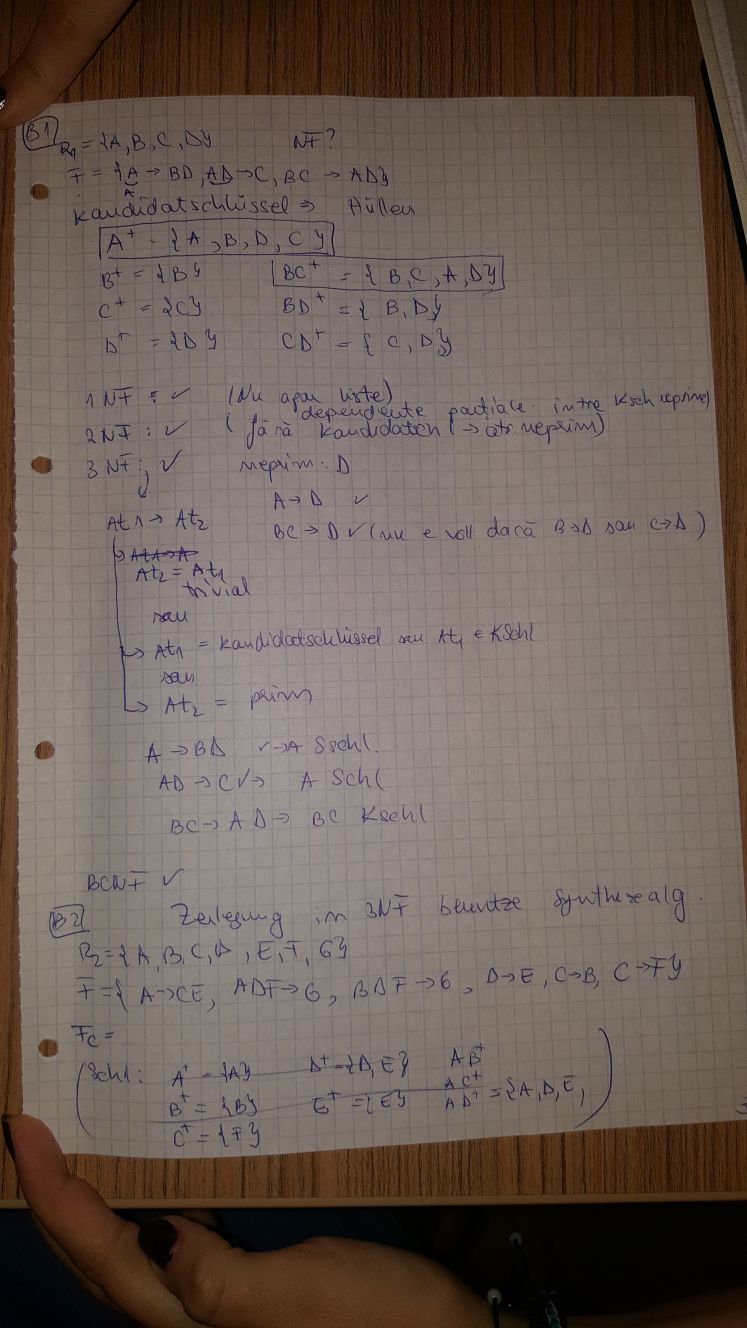 B1
R1 = {A, B, C, D} NF?
F = {A → BD, AD → C, BC → AD}
A
Kandidatschlüssel ⇒ Hüllen
A⁺ = {A, B, D, C}
B⁺ = {B} BC⁺ = {B, C, A, D}
C⁺ = {C} BD⁺ = {B, D}
D⁺ = {D} CD⁺ = {C, D}
1NF : ✓ (Nu apar liste)
dependente partiale intre Ksch neprime)
2NF : ✓ (fără Kandidaten (→ atr. neprim)
3NF : ✓ neprim: D
A → D ✓
At1 → At2 BC → D ✓ (nu e voll dacă B→D sau C→D)
At2 = At1
trivial
sau
→ At1 = Kandidatschlüssel sau At1 ∈ KSchl
sau
→ At2 = prim
A → BD ✓ → A Sschl.
AD → C ✓ → A Schl
BC → AD → BC Kschl
BCNF ✓
B2 Zerlegung in 3NF benutze Synthesealg.
R2 = {A, B, C, D, E, F, G}
F = { A → CE, ADF → G, BDF → G, D → E, C → B, C → F}
Fc =
(Schl: A⁺ = {A} D⁺ = {D, E} AB⁺
AC⁺
B⁺ = {B} E⁺ = {E} AD⁺ = {A, D, E, )
C⁺ = {F}